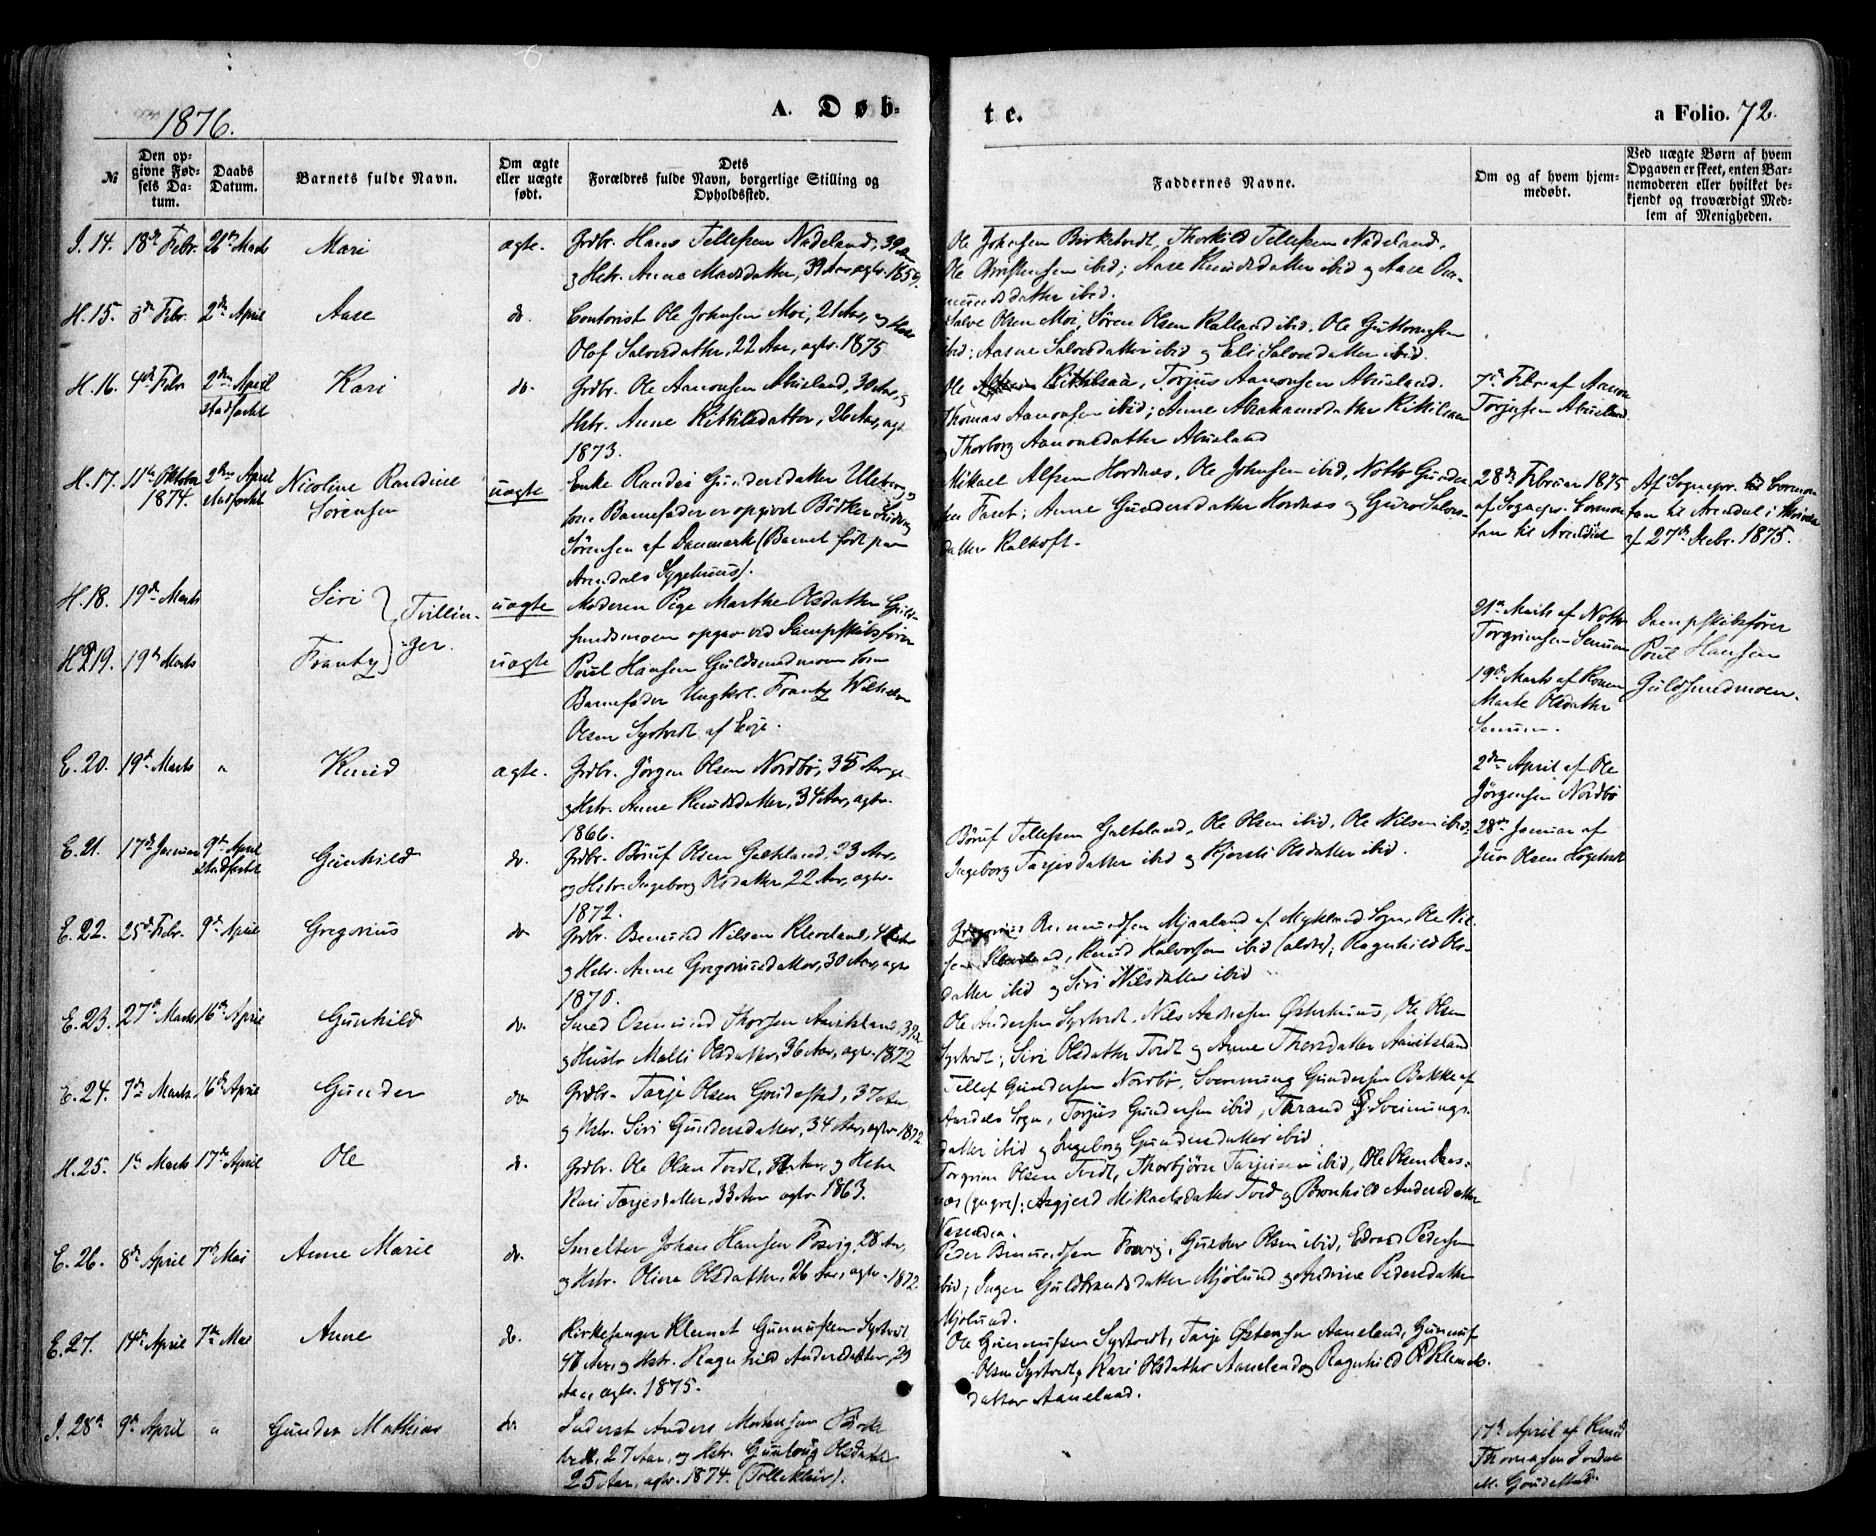 1876.
A. Døb-
te.
a Folio. 72.
№
Den op-
givne Fød-
sels Da-
tum.
Daabs
Datum.
Barnets fulde Navn.
Om ægte
eller uægte
født.
Dets
Forældres fulde Navn, borgerlige Stilling og
Opholdssted.
Faddernes Navne.
Om og af hvem hjem-
medøbt.
Ved uægte Børn af hvem
Opgaven er skeet, enten Bar-
nemoderen eller hvilket be-
kjendt og troværdigt Med-
lem af Menigheden.
I. 14. 18de Febr. 26de Marts Mari ægte. Grdbr. Hans Tellefsen Nadeland, 39
og Hstr. Anne Madsdatter, 39 Aar, agtv. 1859.
Ole Johnsen Birketvedt, Thorkild Tellefsen Nadeland,
Ole Christensen ibid; Aase Knudsdatter ibid og Aase
datter ibid.
H. 15. 8de Febr. 2den April Aase do. Contorist Ole Johnsen Moi, 21 Aar, og Hstr
Olof Salvesdatter, 22 Aar, agtv. 1875
Salve Olsen Moi, Søren Olsen Kalland ibid, Ole Guttormsen
ibid; Aasne Salvesdatter ibid og Eli Salvesdatter ibid.
H. 16. 4de Febr 2den April
stadfæstet
Kari do. Grdbr. Ole Aanonsen Abusland, 30 Aar, og
Hstr. Anne Kittilsdatter, 26 Aar, agtv
1873.
Ole Kittelsaa, Torjus Aanonsen Abusland.
Thomas Aanonsen ibid; Anne Abrahamsdatter Kittilsaa
og Thorborg Aanonsdatter Abusland
7de Febr af Aanon
Torjussen Abusland.
H. 17. 11te Oktober
1874.
2den April
stadfæstet
Nicoline Randine
Sørensen
uægte
Enke Randei Gundersdatter Uleberg,
som Barnefader er opgivet Bødker
Sørensen af Danmark (Barnet født paa
Arendals Sygehuus).
Mikael Alfsen Hordnes, Ole Johnsen ibid, Notto Gunder
sen Faret; Anne Gundersdatter Hordnes og Guro Salves-
datter Kalhoft.
28de Februar 1875
af Sognepr.
til Arendal
Af Sognepr.
til Arendal i
af 27de Decbr. 1875.
H. 18. 19de Marts Siri
Tvillin-
ger.
uægte Moderen Pige Marthe Olsdatter Guld-
smedmoen opgav ved Dampskibsfører
21de Marts af Notto
Torgrimsen Senum
Dampskibsfører
Poul Hansen
Guldsmedmoen.
H. 19. 19de Marts Frantz uægte Poul Hansen Guldsmedmoen som
Barnefader Ungkrl. Frantz Wilhelm
Olsen Syrtvedt af Evje.
19de Marts af Konen
Marte Olsdatter
Senum.
E. 20. 19de Marts " Knud ægte. Grdbr. Jørgen Olsen Nordbø, 35 Aar
og Hstr. Anne Knudsdatter, 34 Aar, agtv.
1866.
2den April af Ole
Jørgensen Nordbø
E. 21. 17de Januar 9de April
stadfæstet
Gunhild do. Grdbr. Børuf Olsen Galteland, 23 Aar,
og Hstr. Ingeborg Olsdatter, 22 Aar, agtv.
1872.
Børuf Tellefsen Galteland, Ole Olsen ibid, Ole Nilsen ibid;
Ingeborg Tarjesdatter ibid og Kjersti Olsdatter ibid.
28de Januar af
Olsen Høgetvedt
E. 22. 25de Febr. 9de April Gregorius do Grdbr. Bernund Nilsen Kleveland,
og Hstr. Anne Gregoriusdatter, 30 Aar, agtv
1870.
Gregorius Bernundsen Mjaaland af Mykland Sogn, Ole Nil-
sen Kleveland, Knud Halvorsen ibid (ældre); Ragnhild Ols-
datter ibid og Siri Nilsdatter ibid
E. 23. 27de Marts 16de April Gunhild do. Smed Osmund Thorsen Aavitsland, 39
og Hustr Malli Olsdatter, 36 Aar, agtv. 1872
Ole Andersen Syrtvedt, Nils Østerhuus, Ole Olsen
Syrtvedt; Siri Olsdatter Tvedt og Anne Thorsdatter Aavitsland
E. 24. 7de Marts 16de April Gunder do. Grdbr. Tarje Olsen Goudestad, 37 Aar
og Hstr. Siri Gundersdatter, 34 Aar, agtv. 1872.
Tellef Gundersen Nordbø, Svennung Gundersen Bakke af
Aardals Sogn, Torjus Gundersen ibid, Tarand Sveinungs-
datter ibid og Ingeborg Gundersdatter ibid.
H. 25. 1ste Marts 17de April Ole do. Grdbr. Ole Olsen Tvedt, Aar, og Hstr
Kari Tarjesdatter, 33 Aar agtv. 1863.
Torgrim Olsen Tvedt, Thorbjørn Tarjeisen ibid, Ole Olsen
(yngre); Asgjerd Mikaelsdatter Tvedt og Brønhild Andersdatter
E. 26. 8de April 7de Mai Anne Marie do. Smelter Johan Hansen Fosvig, 28 Aar,
og Hstr. Olina Olsdatter, 26 Aar, agtv. 1872
Peder Bernundsen Fosvig, Gustav Olsen ibid, Edvard Pedersen
ibid; Inger Guldbrandsdatter Mjølund og Andrine Pedersdatter
Mjølund.
E. 27. 14de April 7de Mai Anne do. Kirkesanger Klemet Gunnufsen Syrtvedt,
47 Aar, og Hstr. Ragnhild Andersdatter, 29
Aar, agtv. 1875.
Ole Gunnufsen Syrtvedt, Tarje Østensen Aaneland, Gunnuf
Olsen Syrtvedt, Kari Olsdatter Aaneland og Ragnhild Klemets-
datter Aaneland.
I. 28. 9de April " Gunder Mathias do Inderst Anders Mortensen Birke
tvedt, 27 Aar, og Hstr. Gunlaug Olsdatter
25 Aar, agtv. 1874. (Tellekleiv).
17de April af Knud
Thomassen